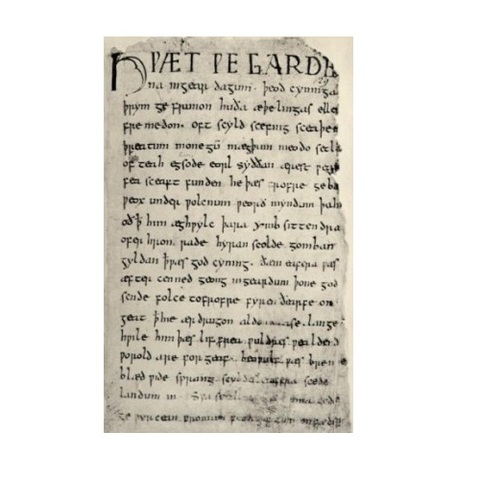 HǷÆT ǷE GARDE
na ingear dagum. þeod cyninga
þrym ge frunon huða æþelingas elle
fre medon. oft scyld scefing sceaþe
þreatum monegū mægþum meodo setl
of teah egsode eorl syððan ærest ƿea
fea sceaft funden he þæs frofre geba
ƿeox under ƿolcnum ƿeorð myndum þah
oð ꝥ him æghƿylc þara ymb sittendra
ofer hron rade hyran scolde gomban
gyldan ꝥ ƿæs god cyning. ðæm eafera ƿæs
æfter cenned geong ingeardum þone god
sende folce tofrofre fyren ðearfe on
geat ꝥ hie ær drugon lange
hƿile him þæs lif frea ƿuldres ƿealdend
ƿorold are for geaf. beoƿulf ƿæs breme
blæd ƿide sprang scyldes eafera scede
landum in
ge ƿyrcean fromum